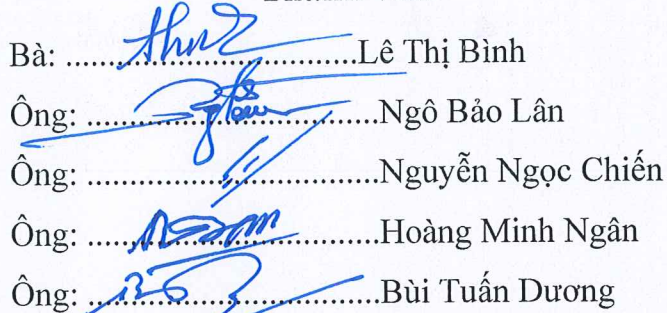 Bà: ..............................................Lê Thị Bình
Ông: ..............................................Ngô Bảo Lân
Ông: ..............................................Nguyễn Ngọc Chiến
Ông: ..............................................Hoàng Minh Ngân
Ông: ..............................................Bùi Tuấn Dương